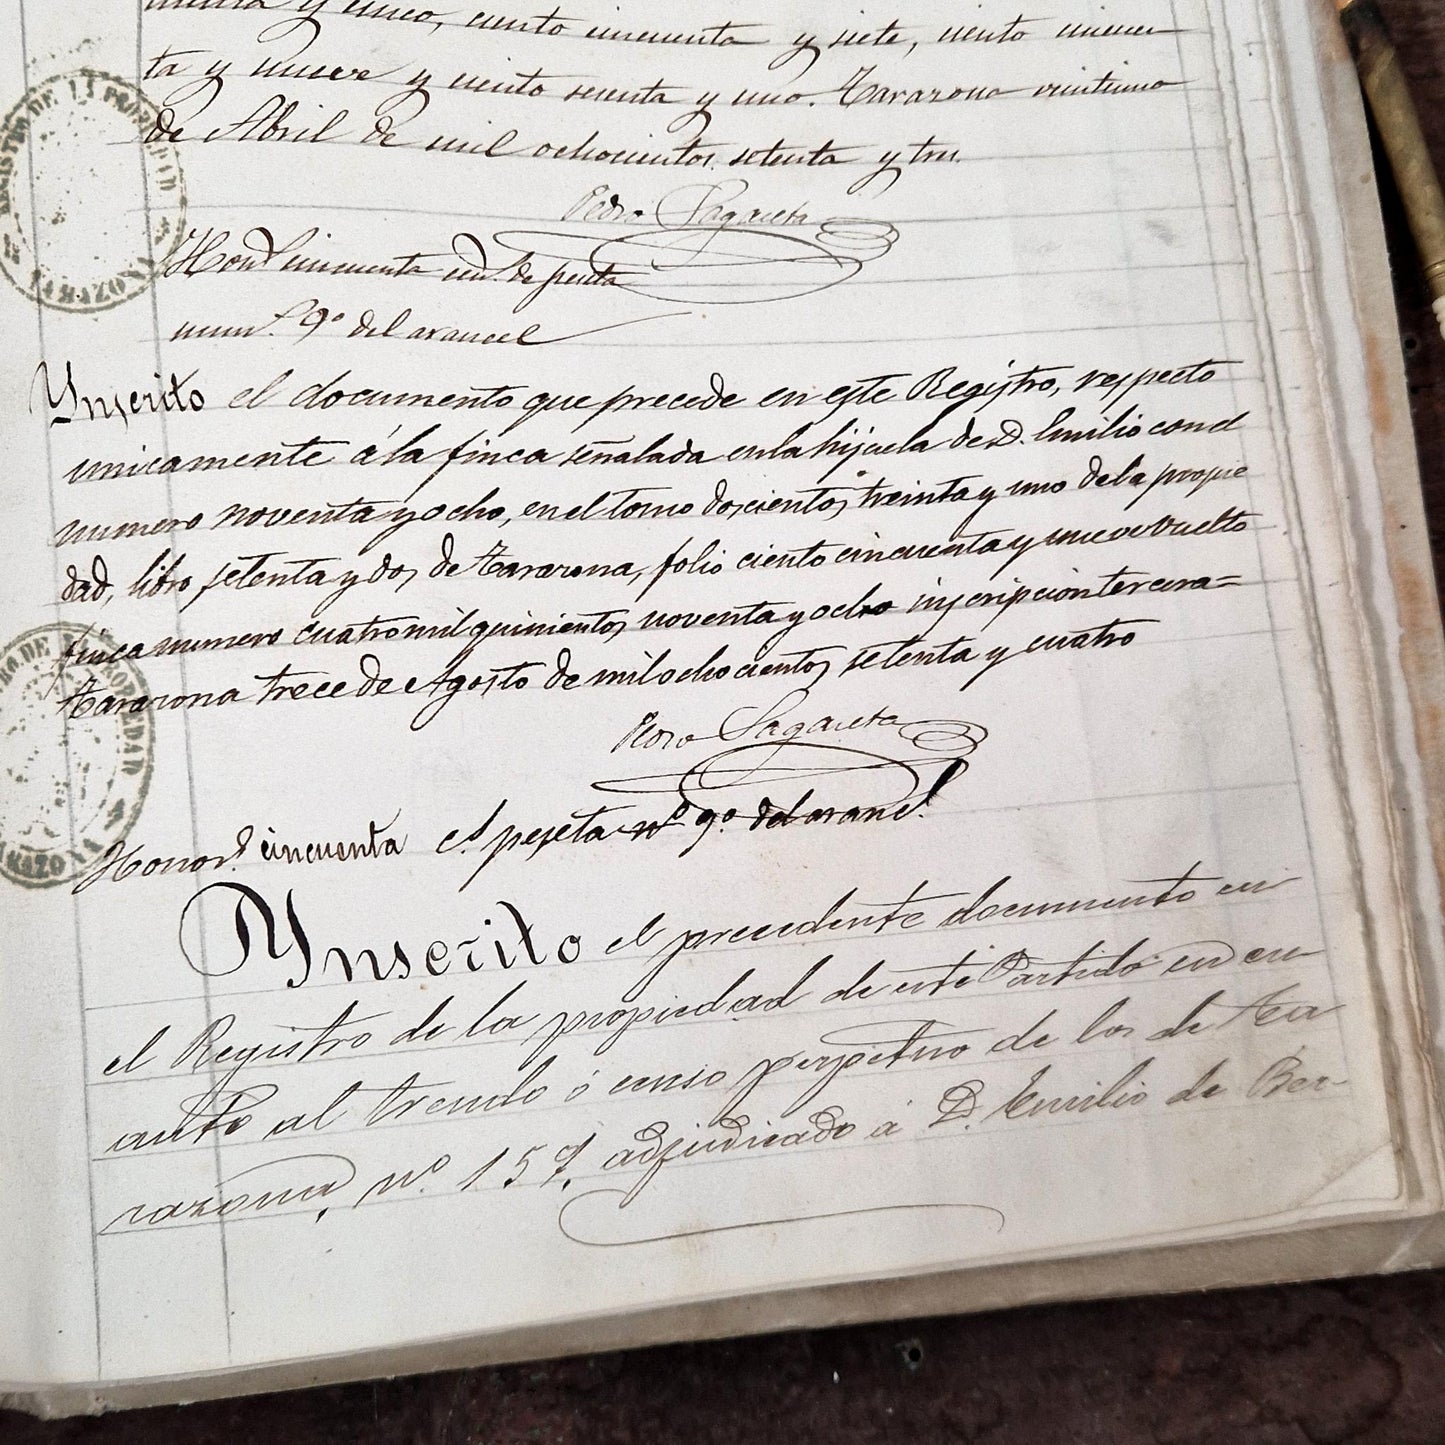 y cinco, ciento cincuenta y siete, ciento cincuen
ta y nueve y ciento sesenta y uno. Tarazona veintiuno
de Abril de mil ochocientos setenta y tres.
Pedro Sagaseta
Honds cincuenta cents. de peseta
num.º 9º del arancel
REGISTRO DE LA PROPIEDAD
TARAZONA
Ynscrito el documento que precede en este Registro, respecto
unicamente á la finca señalada en la hijuela de D. Emilio con el
numero noventa y ocho, en el tomo doscientos treinta y uno de la propie
dad, libro setenta y dos de Tarazona, folio ciento cincuenta y nueve vuelto
finca numero cuatro mil quinientos noventa y ocho inscripcion tercera=
Tarazona trece de Agosto de mil ochocientos setenta y cuatro
Pedro Sagaseta
Honords cincuenta cs. peseta nº 9º del arancl.
RO DE LA PROPIEDAD
TARAZONA
Ynscrito el precedente documento en
el Registro de la propiedad de este Partido en cu
anto al treudo ó censo perpetuo de los de Ta
razona, nº. 157, adjudicado á D. Emilio de Ber-